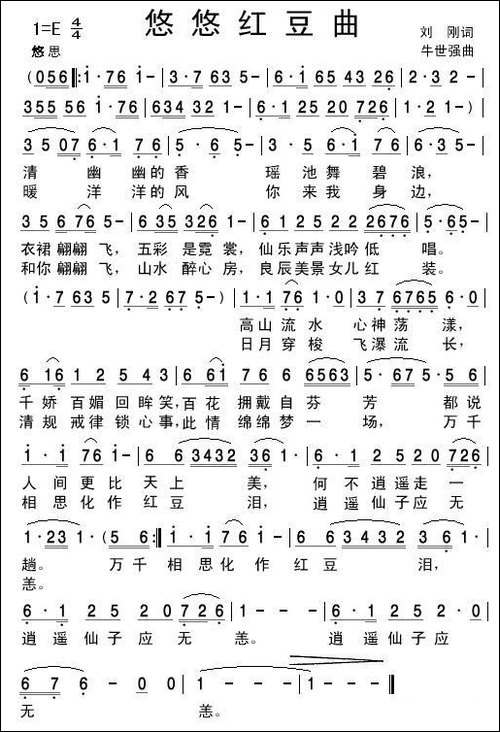 悠悠红豆曲
1=E 4/4
刘 刚词
悠思
牛世强曲
(056|:1·76 1-|3·7635-|6·1 65 43 26|2·32-|
355 56 1·76|634 32 1-|6·1 25 20 726|1·21-)|
3·5 07 6·1 76|5·65-|3·5 6·1 76|5-3-|
清 幽 幽的香 瑶池舞 碧浪,
暖 洋 洋的风 你来我 身边,
35 6765-|635 326-|6125 22 2676|5·65-|
衣裙翩翩飞,五彩 是霓 裳,仙乐声声浅吟低 唱。
和你翩翩飞,山水 醉心 房,良辰美景女儿红 装。
(1·7635|7·2675-)|1·1 76 1·0|37 6765 6·0|
高山流水 心神荡漾,
日月穿梭 飞瀑流长,
6 16 12 543|6 61 76 6563|5·67 5·5|
千娇百媚回眸笑,百花 拥戴自芬 芳 都说
清规戒律锁心事,此情 绵绵梦一 场,万千
1·1 76 1·1|6 63432 36·|6·1 25 20 726|
人间更比天上 美, 何不逍遥走一
相思化作红豆 泪, 逍遥仙子应无
1·231·(56:|1·1 76 1·1|6 63432 36·|
趟。 万千相思化作红豆 泪,
恙。
6·1 25 20 726|1---|6·1 25 2·0|
逍遥仙子应无 恙。 逍遥仙子应
6 76-00|1---|1---||
无 恙。